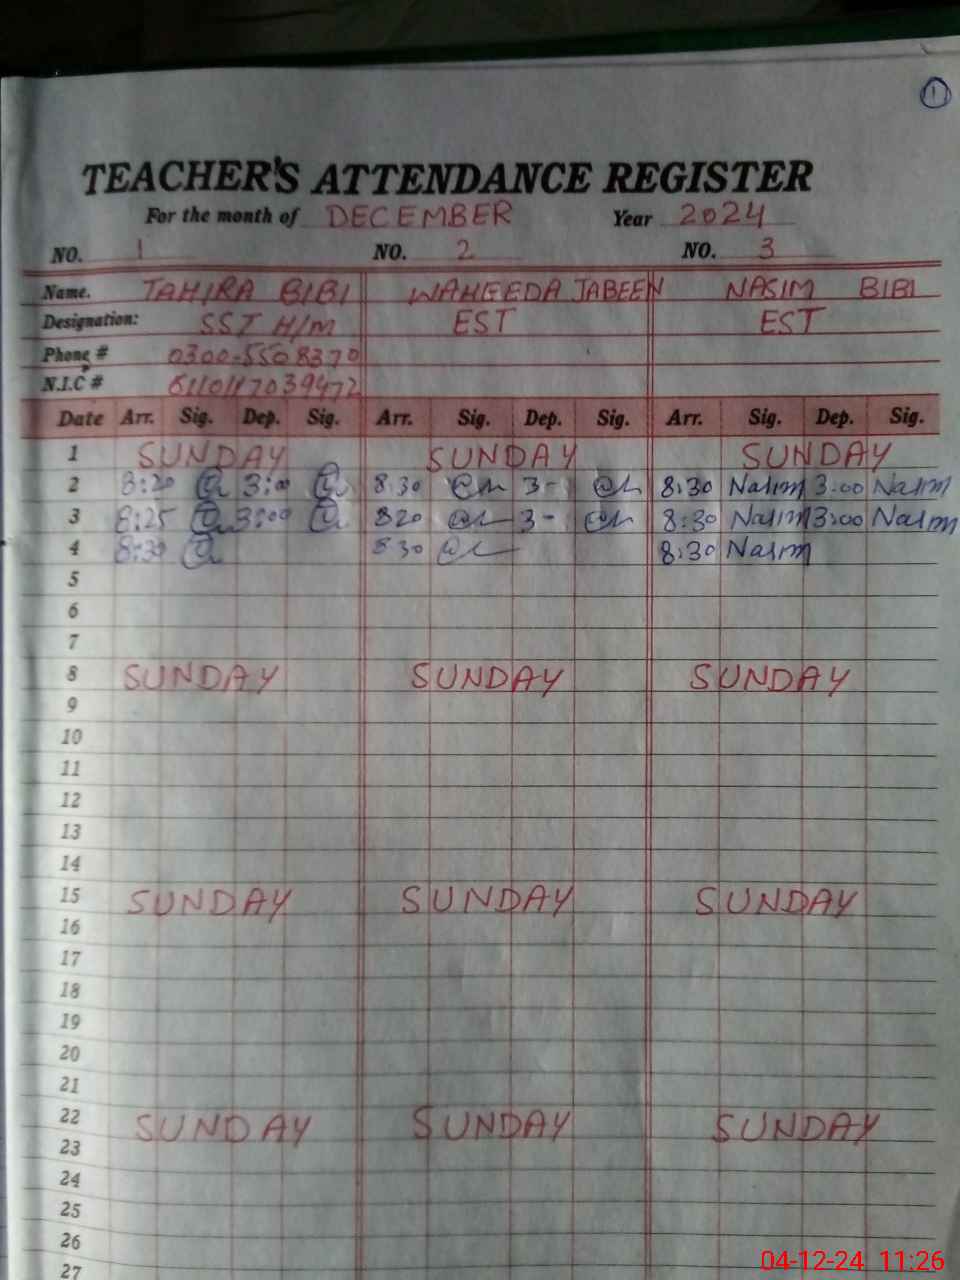 1
TEACHER'S ATTENDANCE REGISTER
For the month of DECEMBER Year 2024
NO. 1 NO. 2 NO. 3
Name. TAHIRA BIBI WAHEEDA JABEEN NASIM BIBI
Designation: SST H/M EST EST
Phone # 0300-5508370
N.I.C # 6110117039472
Date Arr. Sig. Dep. Sig. Arr. Sig. Dep. Sig. Arr. Sig. Dep. Sig.
1 SUNDAY SUNDAY SUNDAY
2 8:20 3:00 8:30 3- 8:30 Nasim 3:00 Nasim
3 8:25 3:00 820 3- 8:30 Nasim 3:00 Nasim
4 8:30 830 8:30 Nasim
5
6
7
8 SUNDAY SUNDAY SUNDAY
9
10
11
12
13
14
15 SUNDAY SUNDAY SUNDAY
16
17
18
19
20
21
22 SUNDAY SUNDAY SUNDAY
23
24
25
26
27
04-12-24 11:26